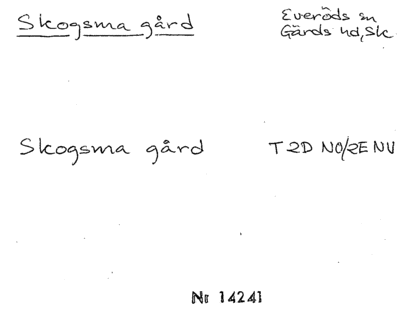 Skogsma gård
Everöds sn
Gärds hd, Sk
Skogsma gård
T 2D NO/2E NV
Nr 14241